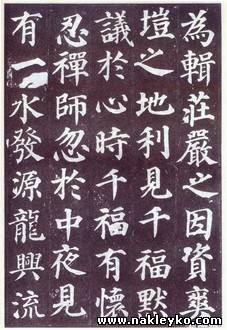 為輯莊嚴之因資爽
塏之地利見千福默
議於心時千福有懷
忍禪師忽於中夜見
有一水發源龍興流
www.nakleyko.com